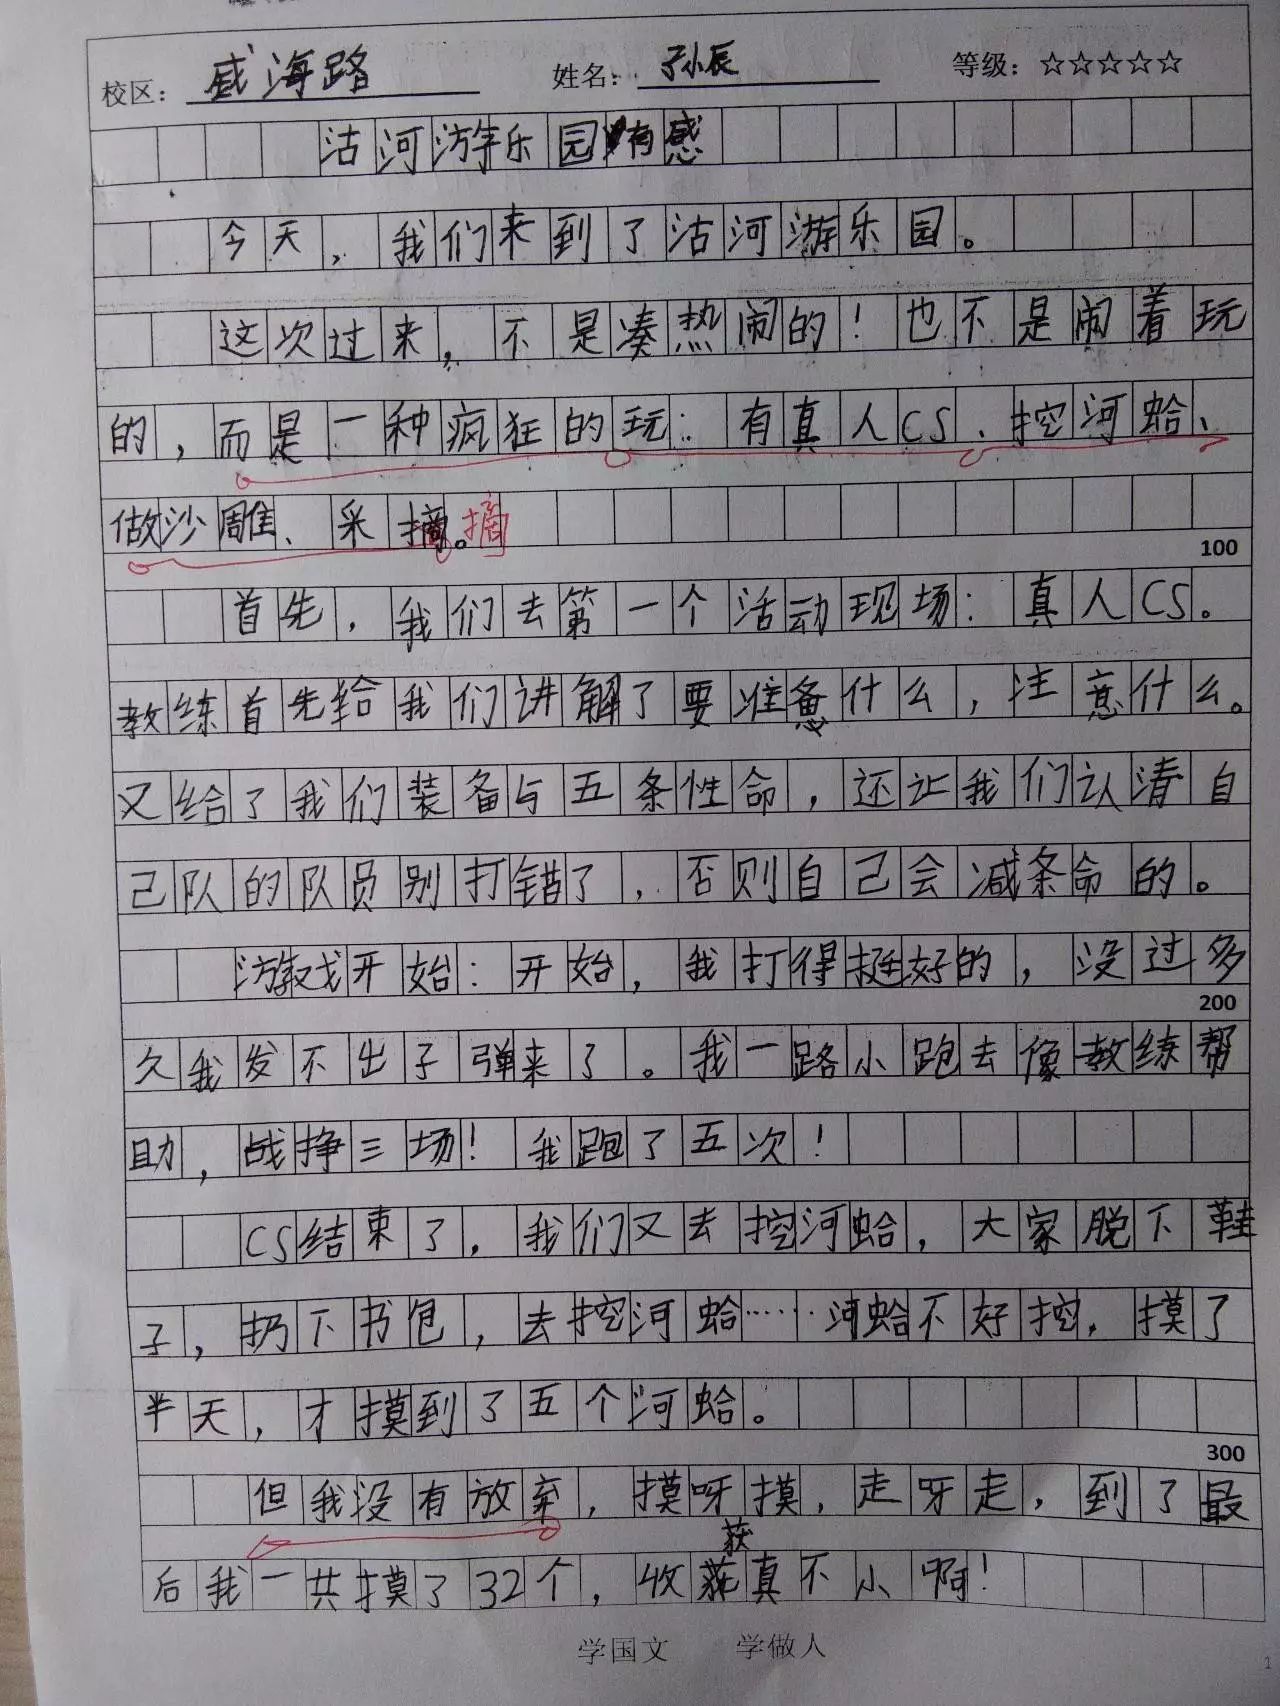 校区：威海路 姓名：孙辰 等级：☆☆☆☆☆
沽河游乐园有感
今天，我们来到了沽河游乐园。
这次过来，不是凑热闹的！也不是闹着玩
的，而是一种疯狂的玩：有真人CS、挖河蛤、
做沙雕、采摘。摘
100
首先，我们去第一个活动现场：真人CS。
教练首先给我们讲解了要准备什么，注意什么。
又给了我们装备与五条性命，还让我们认清自
己队的队员别打错了，否则自己会减条命的。
游戏开始：开始，我打得挺好的，没过多
200
久我发不出子弹来了。我一路小跑去像教练帮
助，战挣三场！我跑了五次！
CS结束了，我们又去挖河蛤，大家脱下鞋
子，扔下书包，去挖河蛤……河蛤不好挖，摸了
半天，才摸到了五个河蛤。
300
但我没有放弃，摸呀摸，走呀走，到了最
获
后我一共摸了32个，收获真不小啊！
学国文 学做人
1